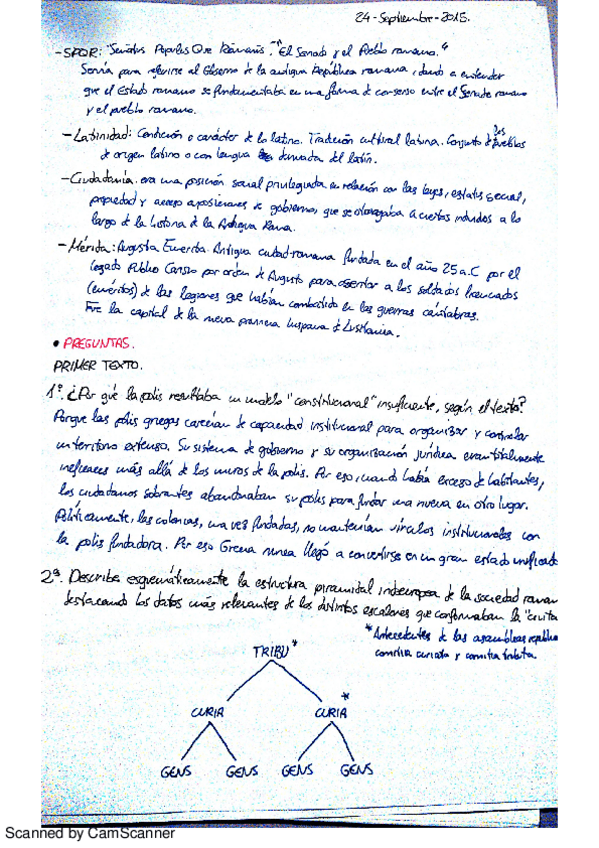 24-Septiembre-2015.
-SPQR: "Senatus Populus Que Romanus". "El Senado y el Pueblo romano."
Servía para referirse al Gobierno de la antigua República romana, dando a entender
que el Estado romano se fundamentaba en una forma de consenso entre el Senado romano
y el pueblo romano.
-Latinidad: Condición o carácter de lo latino. Tradición cultural latina. Conjunto de los pueblos
de origen latino o con lengua derivada del latín.
-Ciudadanía: era una posición social privilegiada en relación con las leyes, estatus social,
propiedad y acceso a posiciones de gobierno, que se otorgaba a ciertos individuos a lo
largo de la historia de la Antigua Roma.
-Mérida: Augusta Emerita. Antigua ciudad romana fundada en el año 25 a.C por el
legado Publio Carisio por orden de Augusto para asentar a los soldados licenciados
(eméritos) de las legiones que habían combatido en las guerras cántabras.
Fue la capital de la nueva provincia hispana de Lusitania.
• PREGUNTAS.
PRIMER TEXTO.
1ª. ¿Por qué la polis resultaba un modelo "constitucional" insuficiente, según el texto?
Porque las polis griegas carecían de capacidad institucional para organizar y controlar
un territorio extenso. Su sistema de gobierno y su organización jurídica eran totalmente
ineficaces más allá de los muros de la polis. Por eso, cuando había exceso de habitantes,
los ciudadanos sobrantes abandonaban su polis para fundar una nueva en otro lugar.
Políticamente, las colonias, una vez fundadas, no mantenían vínculos institucionales con
la polis fundadora. Por eso Grecia nunca llegó a convertirse en un gran estado unificado
2ª. Describe esquemáticamente la estructura piramidal indoeuropea de la sociedad roman
destacando los datos más relevantes de los distintos escalones que conformaban la "civita
*Antecedentes de las asambleas republic
comitia curiata y comitia tributa
TRIBU*
CURIA CURIA*
GENS GENS GENS GENS
Scanned by CamScanner